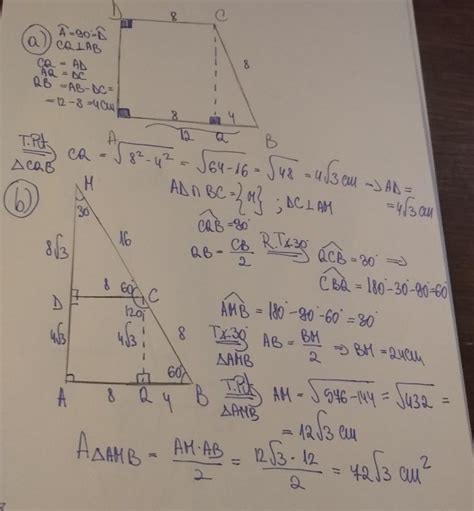 a) Â=90=D̂
CQ⊥AB
CQ = AD
AQ = DC
QB = AB-DC=
=12-8=4cm
D 8 C
8
8 4
A 12 Q B
T.Pit
ΔCQB CQ = √8²-4² = √64-16 = √48 = 4√3 cm → AD=
=4√3 cm
b) AD∩BC={M} ; DC⊥AM
M
30
8√3 16
D 8 60 C
120
4√3 4√3 8
60
A 8 Q 4 B
CQB=90°
QB = CB/2 R.T∡30° QCB=30° ⇒
CBQ=180°-30-90=60
AMB=180°-90-60°=30°
T∡30°
ΔAMB AB = BM/2 ⇒ BM=24cm
T.Pit
ΔAMB AM = √576-144 = √432 =
= 12√3 cm
AΔAMB = AM·AB/2 = 12√3·12/2 = 72√3 cm²